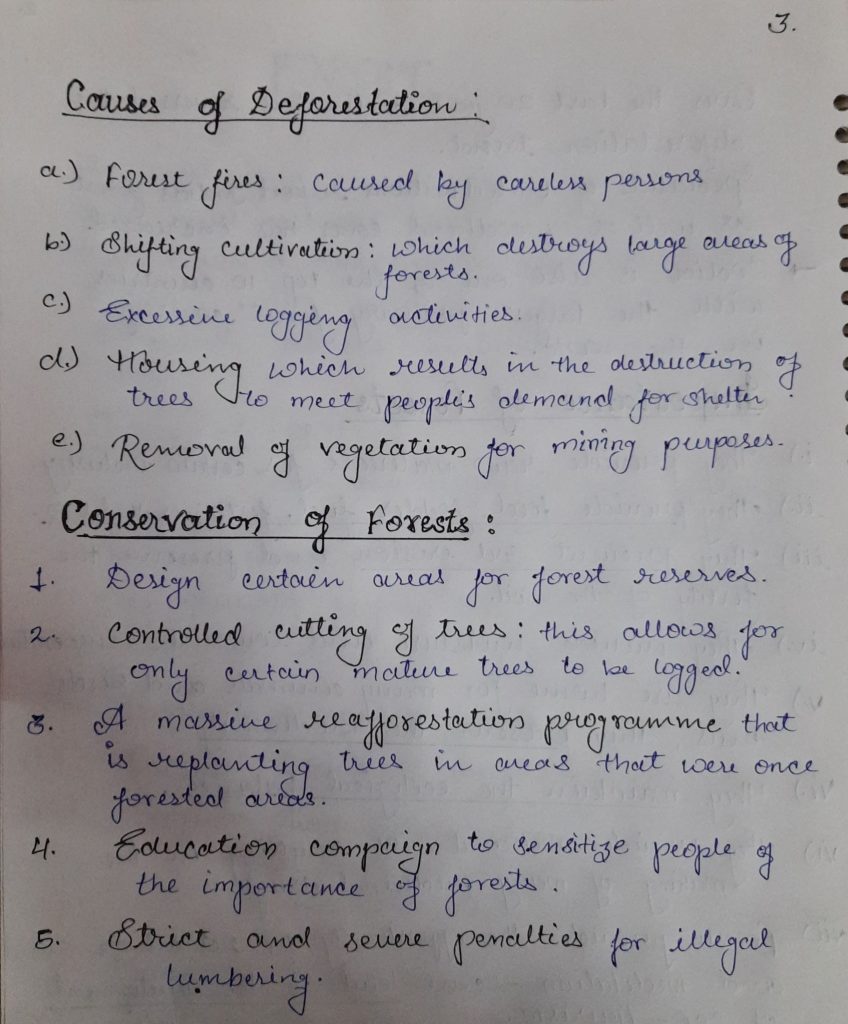 3.
Causes of Deforestation :
a.) Forest fires : caused by careless persons
b.) Shifting cultivation : which destroys large areas of
forests.
c.) Excessive logging activities.
d.) Housing which results in the destruction of
trees to meet people's demand for shelter.
e.) Removal of vegetation for mining purposes.
Conservation of Forests :
1. Design certain areas for forest reserves.
2. Controlled cutting of trees : this allows for
only certain mature trees to be logged.
3. A massive reafforestation programme that
is replanting trees in areas that were once
forested areas.
4. Education compaign to sensitize people of
the importance of forests.
5. Strict and severe penalties for illegal
lumbering.